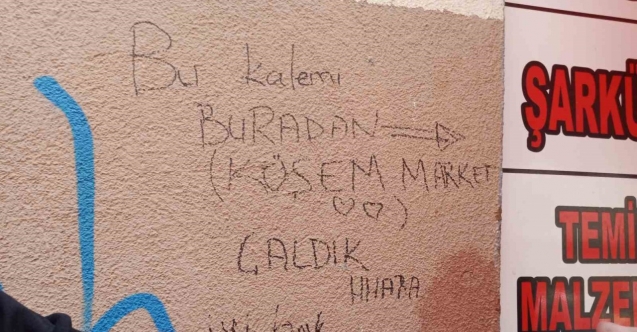 Bu kalemi
BURADAN
(KÖŞEM MARKET
)
ÇALDIK
ŞARKÜ
TEMİ
MALZE